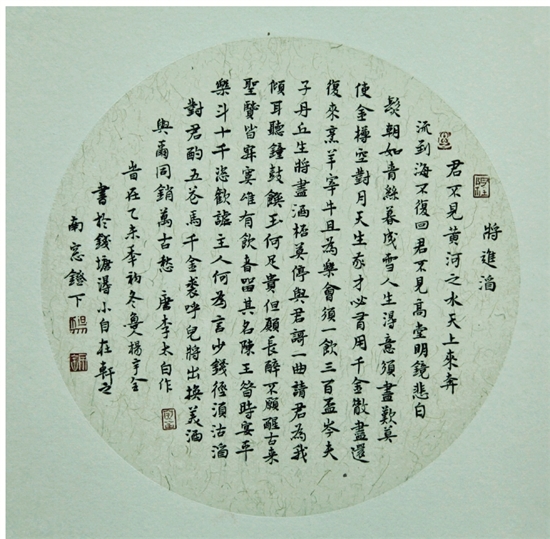 將進酒
君不見黃河之水天上來奔
流到海不復回君不見高堂明鏡悲白
髮朝如青絲暮成雪人生得意須盡歡莫
使金樽空對月天生我才必有用千金散盡還
復來烹羊宰牛且為樂會須一飲三百盃岑夫
子丹丘生將盡酒桮莫停與君謌一曲請君為我
傾耳聽鐘鼓饌玉何足貴但願長醉不願醒古來
聖賢皆寂寞唯有飲者留其名陳王昔時宴平
樂斗十千恣歡謔主人何為言少錢徑須沽酒
對君酌五花馬千金裘呼兒將出換美酒
與爾同銷萬古愁 唐李太白作
旹在乙未年初冬魯楊宇全
書於錢塘得小自在軒之
南窓鐙下